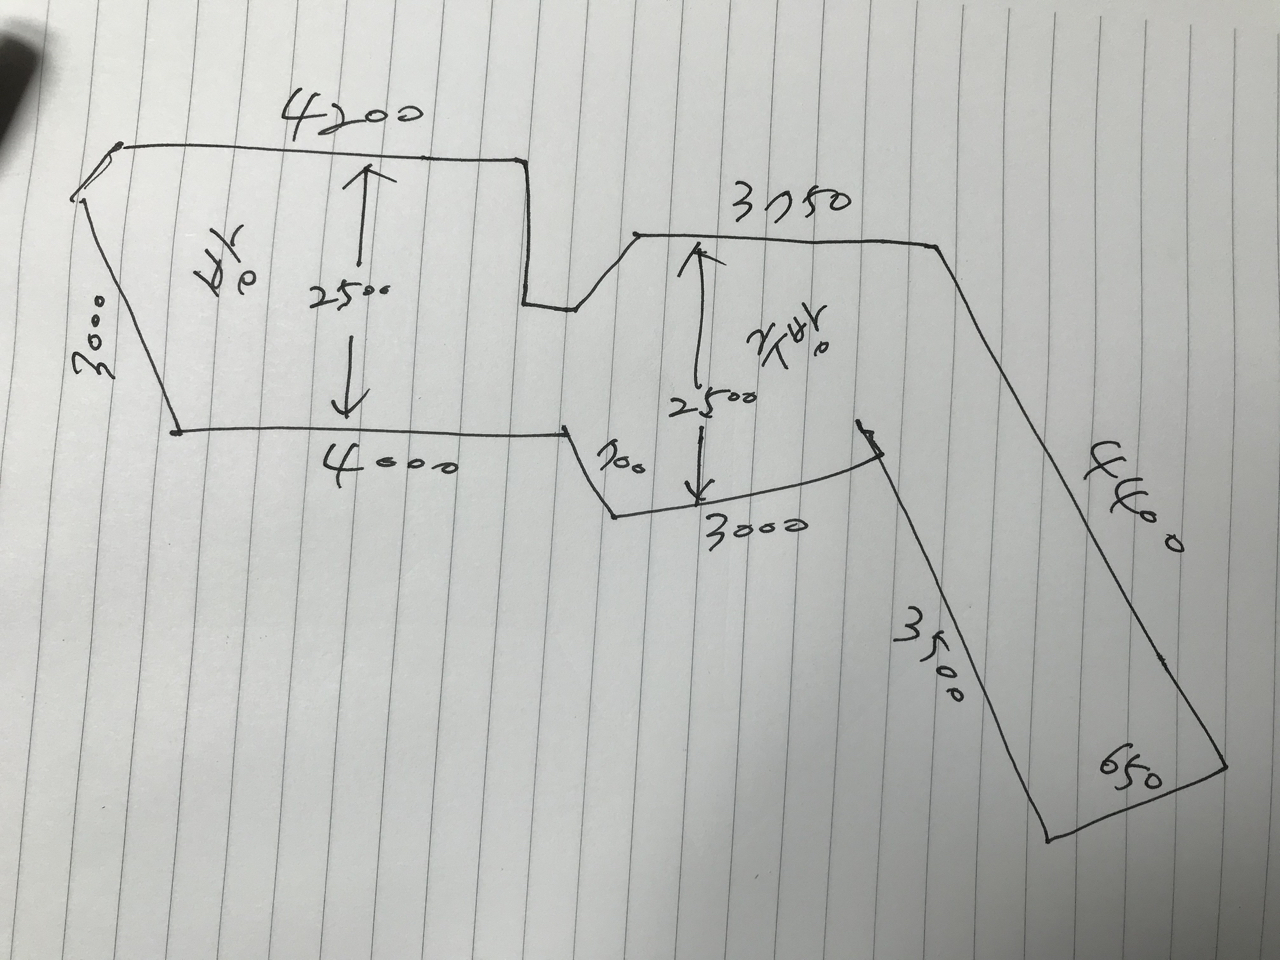 4200
3750
3000
2500
2500
4000
700
3000
4400
3500
650